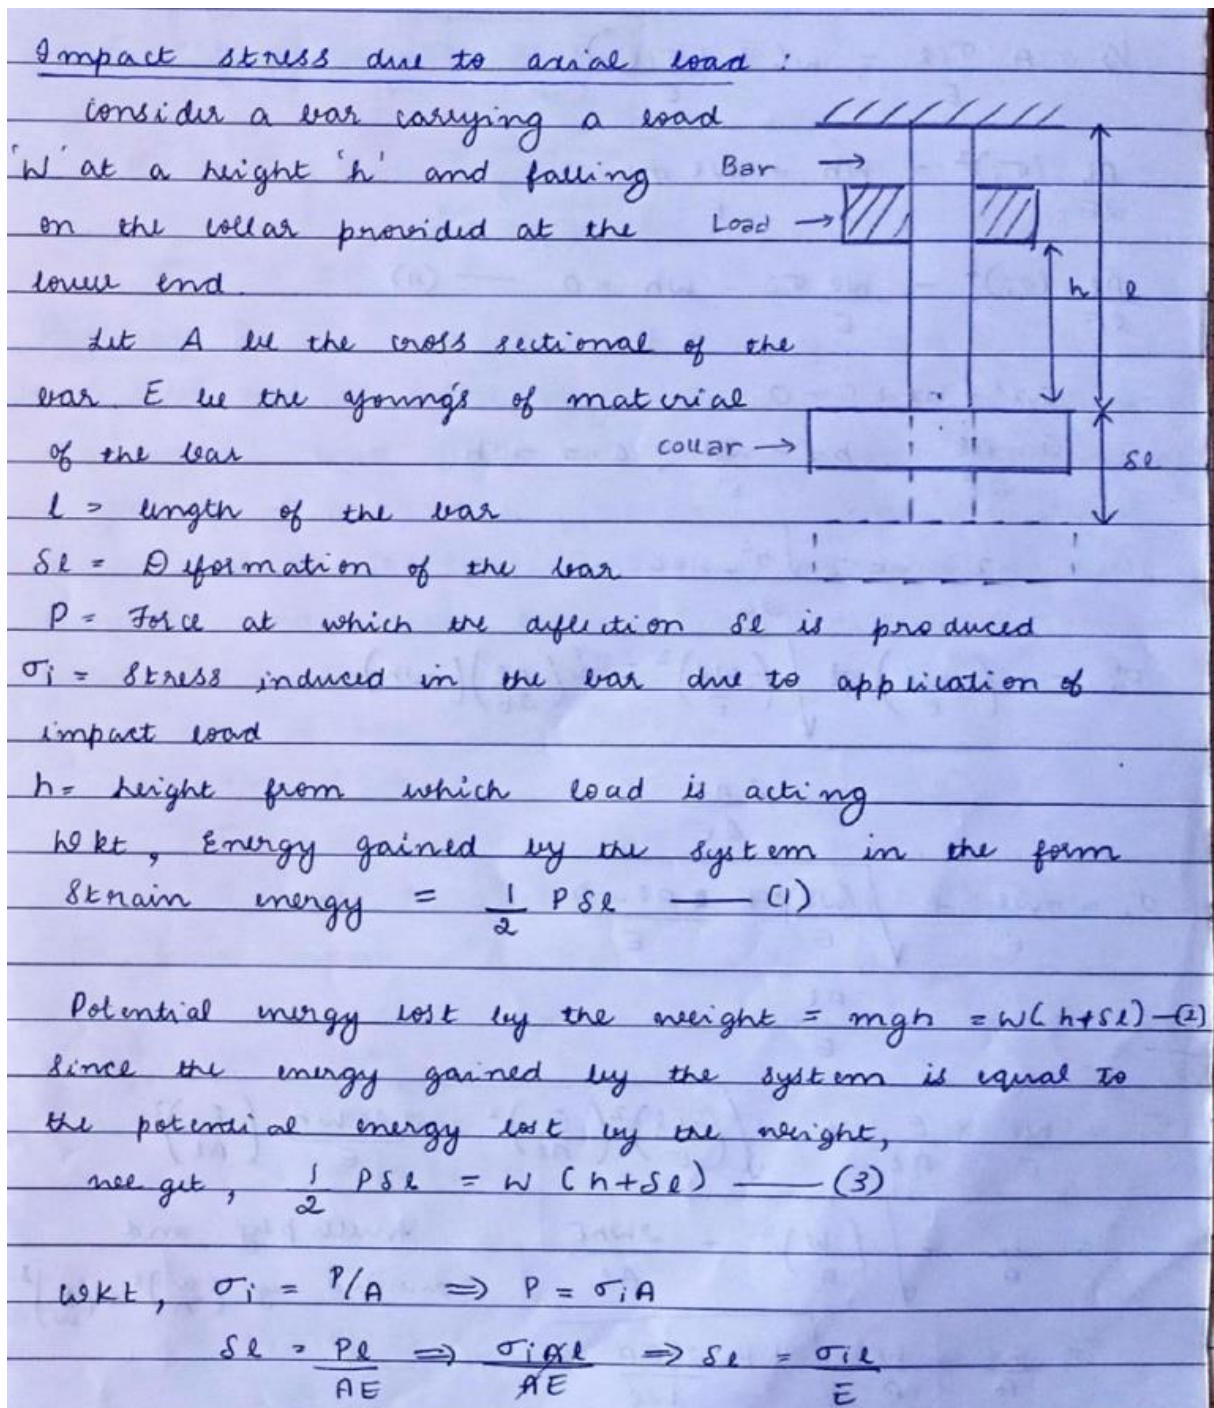 Impact stress due to axial load :
Consider a bar carrying a load
'W' at a height 'h' and falling
on the collar provided at the
lower end.
Let A be the cross sectional of the
bar E be the young's of material
of the bar
Bar →
Load →
h
l
collar →
δl
l = length of the bar
δl = Deformation of the bar
P = Force at which the deflection δl is produced
σi = stress induced in the bar due to application of
impact load
h = height from which load is acting
Wkt, Energy gained by the system in the form
strain energy = 1/2 P δl —— (1)
Potential energy lost by the weight = mgh = W(h+δl) —(2)
Since the energy gained by the system is equal to
the potential energy lost by the weight,
we get, 1/2 Pδl = W (h+δl) —— (3)
wkt, σi = P/A ⇒ P = σiA
δl = Pl/AE ⇒ σiAl/AE ⇒ δl = σil/E